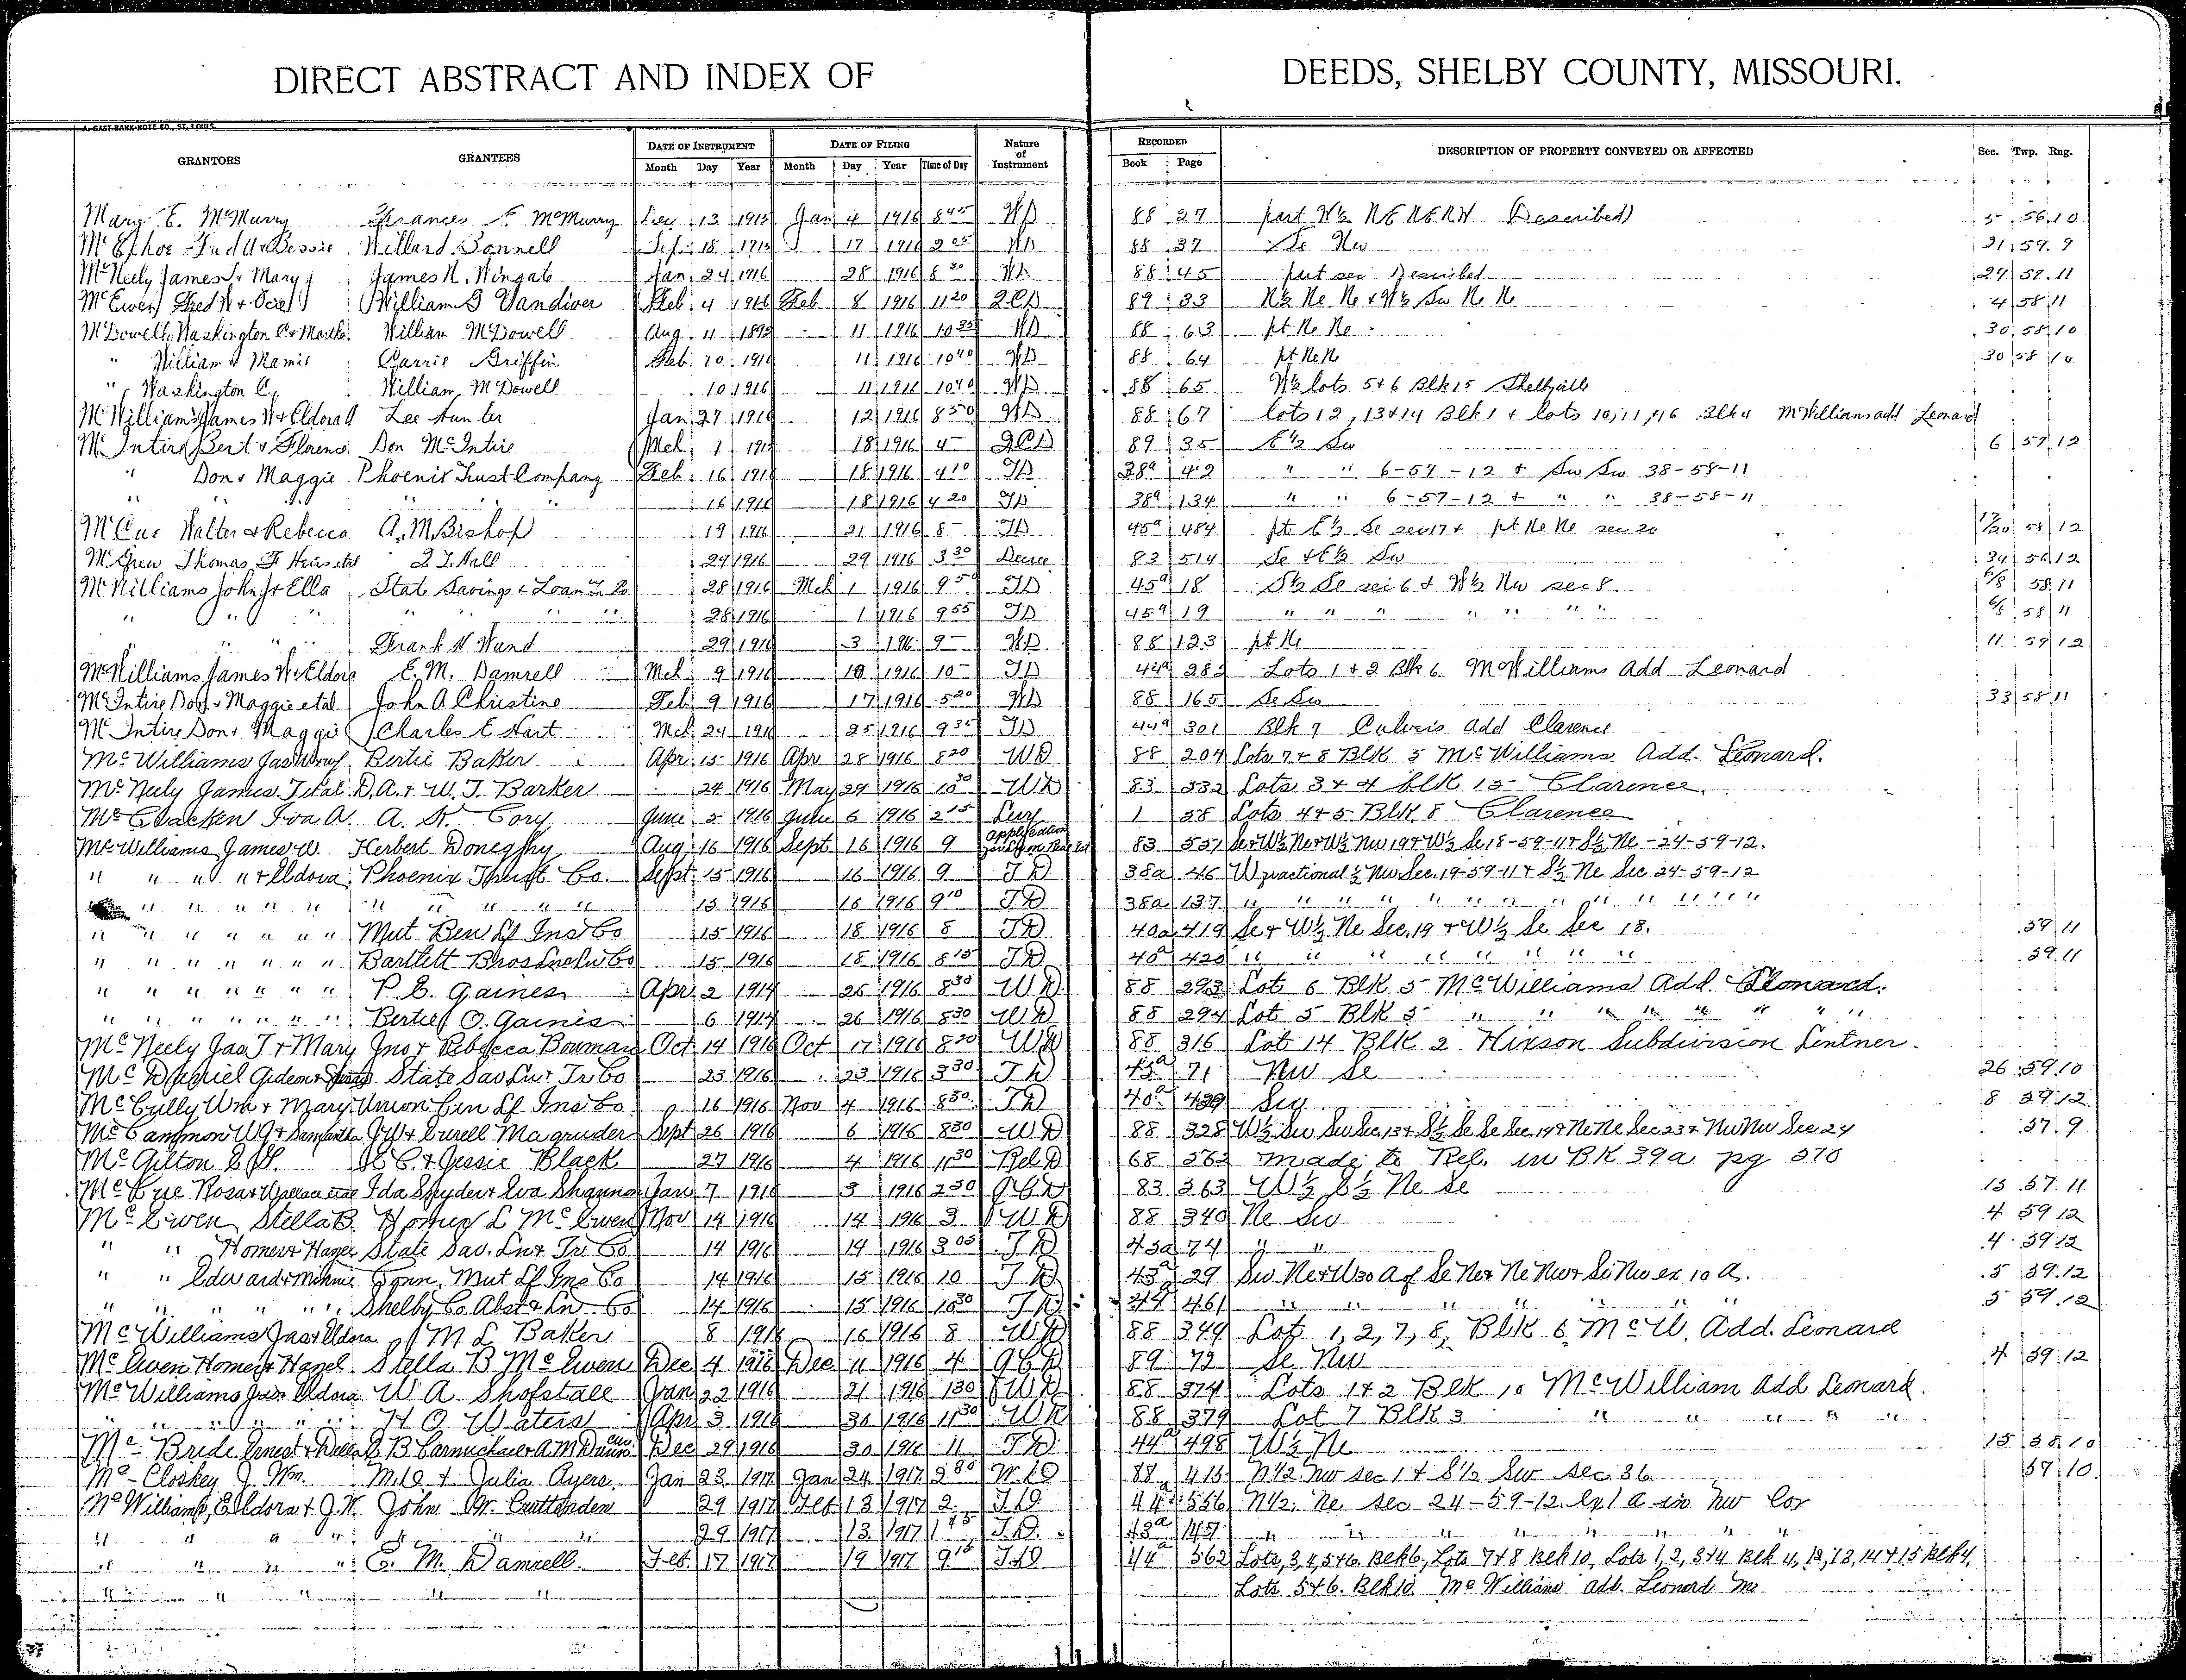 DIRECT ABSTRACT AND INDEX OF DEEDS, SHELBY COUNTY, MISSOURI.
A. GAST BANK-NOTE CO., ST. LOUIS
GRANTORS GRANTEES DATE OF INSTRUMENT DATE OF FILING Nature of Instrument RECORDED DESCRIPTION OF PROPERTY CONVEYED OR AFFECTED Sec. Twp. Rng.
Month Day Year Month Day Year Time of Day Book Page
Mary E. McMurry Frances McMurry Dec 13 1915 Jan 4 1916 8 45 WD 88 27 part W½ (Described) 5 56 10
Willard Bonnell Sep 18 1915 17 1916 WD 88 37 Se Nw 31 59 9
McNeely James & Mary James N. Wingate Jan 24 1916 28 1916 8 30 WD 88 45 part sec Described 24 57 11
McEwen Fred & William G Vandiver Feb 4 1916 Feb 8 1916 11 20 QCD 89 33 N½ Ne Ne & W½ Sw Ne Ne 4 58 11
McDowell, Washington C & Martha William McDowell Aug 4 11 1916 10 35 WD 88 63 pt Ne Ne 30 58 10
" William & Mamie Carrie Griffin Feb 10 1916 11 1916 10 40 WD 88 64 pt Ne Ne 30 58 10
" Washington C. William McDowell 10 1916 11 1916 10 40 WD 88 65 W½ lots 5 & 6 Blk 15 Shelbyville
McWilliams James W & Eldora Lee Hunter Jan 27 1916 12 1916 8 50 WD 88 67 lots 12, 13 & 14 Blk 1 & lots 10, 11, & 16 Blk 4 McWilliams add Leonard
McIntire Bert & Florence Don McIntire Mch 1 18 1916 4 - QCD 89 35 E½ Sw 6 57 12
" Don & Maggie Phoenix Trust Company Feb 16 1916 18 1916 4 10 TD 38a 42 " " 6-57-12 & Sw Sw 38-58-11
" " " " 16 1916 18 1916 4 20 TD 38a 134 " " 6-57-12 & " " 38-58-11
McCue Walter & Rebecca A. M. Bishop 19 1916 21 1916 8 - TD 45a 484 pt E½ Se sec 17 & pt Ne Ne sec 20 17/20 58 12
McGrew Thomas F Heirs etal Hall 29 1916 29 1916 3 30 Decree 83 514 Se & E½ Sw 34 56 12
McWilliams John J & Ella State Savings & Loan & Tr Co 28 1916 Mch 1 1916 9 50 TD 45a 18 S½ Se sec 6 & W½ Nw sec 8 6/8 58 11
" " " " 28 1916 1 1916 9 55 TD 45a 19 " " " " " " " 6/8 58 11
" " " Frank W Wand 29 1916 3 1916 9 - WD 88 123 pt Ne 11 59 12
McWilliams James W & Eldora E. M. Damrell Mch 9 1916 10 1916 10 - TD 44a 282 Lots 1 & 2 Blk 6 McWilliams Add Leonard
McIntire Don & Maggie etal John A Christine Feb 9 1916 17 1916 5 20 WD 88 165 Se Sw 33 58 11
McIntire Don & Maggie Charles E Hart Mch 24 1916 25 1916 9 35 TD 44a 301 Blk 7 Culvers Add Clarence
McWilliams Jas W & wf Bertie Baker Apr 15 1916 Apr 28 1916 8 20 WD 88 204 Lots 7 & 8 Blk 5 McWilliams Add. Leonard.
McNeely James T etal D. A. & W. T. Barker 24 1916 May 29 1916 10 30 WD 83 532 Lots 3 & 4 blk 15 Clarence.
McCracken Ira A. A. W. Cory June 5 1916 July 6 1916 2 15 Levy 1 58 Lots 4 & 5 Blk 8 Clarence
McWilliams James W. Herbert Doneghy Aug 16 1916 Sept 16 1916 9 application 83 537 Se & W½ Ne & W½ Nw 19 & W½ Se 18-59-11 & S½ Ne - 24-59-12.
" " " " & Eldora Phoenix Trust Co. Sept 15 1916 16 1916 9 TD 38a 46 W fractional ½ Nw Sec. 19-59-11 & S½ Ne Sec 24-59-12
" " " " " " " " " 15 1916 16 1916 9 10 TD 38a 137 " " " " " " " " " " "
" " " " " " Mut Ben Lf Ins Co 15 1916 18 1916 8 TD 40a 419 Se & W½ Ne Sec. 19 & W½ Se Sec 18. 59 11
" " " " " " Bartlett Bros Ln & Inv Co 15 1916 18 1916 8 15 TD 40a 420 " " " " " " " " 59 11
" " " " " " P. E. Gaines Apr 2 1914 26 1916 8 30 WD 88 293 Lot 6 Blk 5 McWilliams Add. Leonard.
" " " " " " Bertie O. Gaines 6 1914 26 1916 8 30 WD 88 294 Lot 5 Blk 5 " " " " " "
McNeely Jas T & Mary Jno & Rebecca Bowman Oct 14 1916 Oct 17 1916 8 20 WD 88 316 Lot 14 Blk 2 Hixson Subdivision Lentner.
McDaniel Gideon & State Sav. Ln & Tr Co 23 1916 23 1916 3 30 TD 45a 71 Nw Se 26 59 10
McCully Wm & Mary Union Cen Lf Ins Co 16 1916 Nov 4 1916 8 50 TD 40a 429 8 59 12
McCammon W G & Samantha J W & Curell Magruder Sept 26 1916 6 1916 8 30 WD 88 328 W½ Sw Sw Sec. 13 & S½ Se Se Sec. 14 & Ne Ne Sec 23 & Nw Nw Sec 24 57 9
McGilton & Jessie Black 27 1916 4 1916 11 30 Rel D 68 562 made to Rel. in BK 39a pg 370
McCrye Rosa & Wallace etal Ida Snyder & Eva Shgunna Jan 7 1916 3 1916 2 30 QCD 83 363 W½ E½ Ne Se 15 57 11
McEwen Stella B. Homer L McEwen Nov 14 1916 14 1916 3 WD 88 340 Ne Sw 4 59 12
" " Homer & Hazel State Sav. Ln & Tr Co 14 1916 14 1916 3 05 TD 45a 74 " " 4 59 12
" " Edward & Minnie Conn. Mut Lf Ins Co 14 1916 15 1916 10 TD 43a 29 Sw Ne & W 30 A of Se Ne & Ne Nw & Se Nw ex 10 A. 5 59 12
" " " " " Shelby Co Abst & Ln Co 14 1916 15 1916 10 30 TD 461 " " " " " " 5 59 12
McWilliams Jas & Eldora M L Baker 8 1916 16 1916 8 WD 88 349 Lot 1, 2, 7, 8, Blk 6 McW. Add. Leonard
McEwen Homer & Hazel Stella B McEwen Dec 4 1916 Dec 11 1916 4 QCD 89 72 Se Nw 4 59 12
McWilliams Jas & Eldora W A Shofstall Jan 22 1916 21 1916 1 30 WD 88 374 Lots 1 & 2 Blk 10 McWilliam Add Leonard.
" " " " " H O Waters Apr 3 1916 30 1916 11 30 WD 88 379 Lot 7 Blk 3 " " " " "
McBride Ernest & Della B Carmichael & A M Dawson Dec 29 1916 30 1916 11 TD 44a 498 W½ Ne 15 58 10
McCloskey J. Wm. & Julia Ayers Jan 23 1917 Jan 24 1917 W.D 88 415 N½ Nw sec 1 & S½ Sw sec. 36. 57 10
McWilliams, Eldora & J. W. John W. Crittenden 29 1917 Feb 13 1917 2 T.D 44a 556 N½ Ne sec 24-59-12. Ex 1 a in Nw Cor
" " " " " " " 29 1917 13 1917 1 45 T.D. 43a 145 " " " " " " "
" " " " E. M. Damrell. Feb. 17 1917 19 1917 9 15 T.D 44a 562 Lots, 3, 4, 5 & 6 Blk 6, Lots 7 & 8 Blk 10, Lots 1, 2, 3 & 4 Blk 4, 12, 13, 14 & 15 blk 4,
" " " " " " Lots 5 & 6. Blk 10 McWilliams add. Leonard Mo.